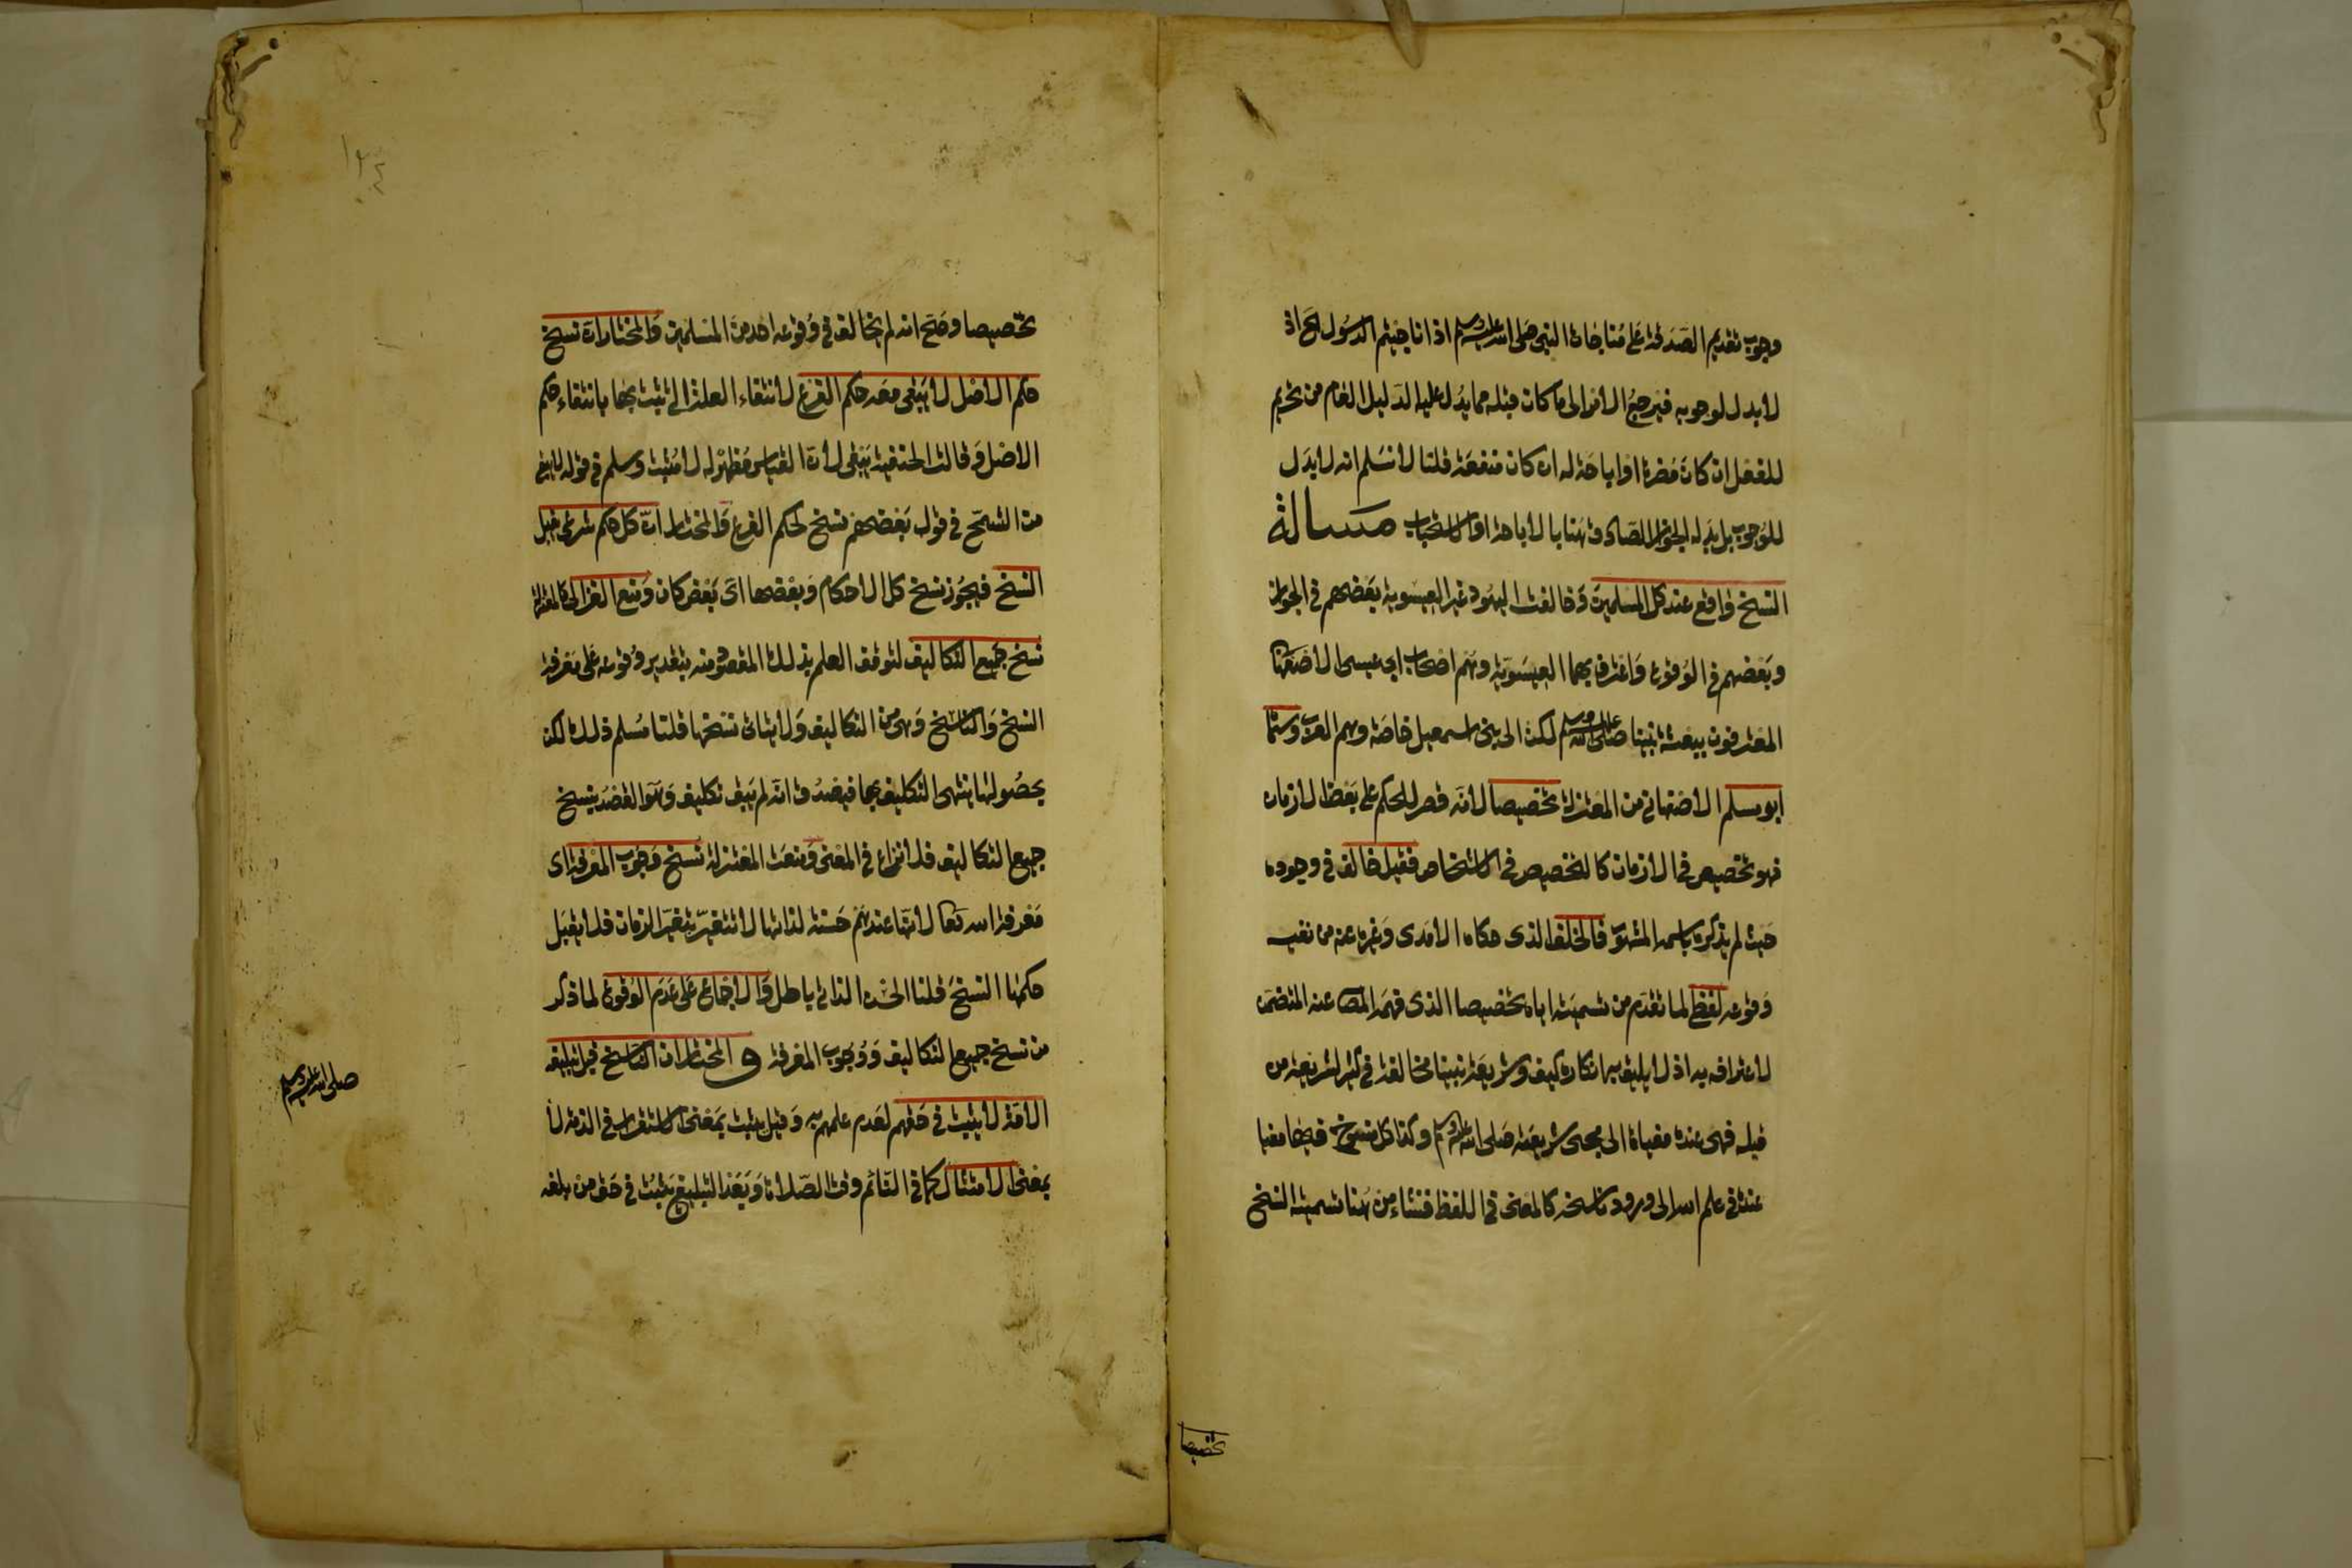 وجوب تقديم الصدقة على مناجاة النبى صلى الله عليه وسلم اذا ناجيتم الرسول الخ اذ
لا بدل لوجوبه فيرجع الامر الى ما كان قبله مما يدل عليه الدليل العام من تحريم
للفعل ان كان مضرة او اباحة له ان كان منفعة قلنا لا نسلم انه لا بدل
للوجوب بل بدله الجواز الصادق هنا بالاباحة او الاستحباب مسالة
النسخ واقع عند كل المسلمين وخالفت اليهود غير العيسوية بعضهم فى الجواز
وبعضهم فى الوقوع واعترف بهما العيسوية وهم اصحاب ابى عيسى الاصفهانى
المعترفون ببعثة نبينا صلى الله عليه وسلم لكن الى بنى اسمعيل خاصة وهم العرب وسماه
ابو مسلم الاصفهانى من المعتزلة تخصيصا لانه قصر للحكم على بعض الازمان
فهو تخصيص فى الازمان كالتخصيص فى الاشخاص فقيل خالف فى وجوده
حيث لم يذكره باسمه المشهور فالخلف الذى حكاه الآمدى وغيره عنه من نفيه
وقوعه لفظى لما تقدم من تسميته اياه تخصيصا الذى فهمه المص عنه المتضمن
لاعترافه به اذ لا يليق به انكاره كيف وشريعة نبينا مخالفة فى كثير لشريعة من
قبله فهى عنده مغياة الى مجى شريعته صلى الله عليه وسلم وكذا كل منسوخ فيها مغيا
عنده فى علم الله الى ورود ناسخه كالمغيى فى اللفظ فنشاء من هنا تسمية النسخ
تخصيصا
تخصيصا وصح انه لم يخالف فى وقوعه احد من المسلمين والمختار ان نسخ
حكم الاصل لا يبقى معه حكم الفرع لانتفاء العلة التى ثبت بها بانتفاء حكم
الاصل وقالت الحنفية يبقى لان القياس مظهر له لا مثبت وسلم فى قوله لا يبقى
من التسمح فى قول بعضهم نسخ لحكم الفرع والمختار ان كل حكم شرعى يقبل
النسخ فيجوز نسخ كل الاحكام وبعضها اى بعض كان ومنع الغزالى كالمعتزلة
نسخ جميع التكاليف لتوقف العلم بذلك المقصود منه بتقدير وقوعه على معرفة
النسخ والناسخ وهى من التكاليف ولا يتاتى نسخها قلنا مسلم ذلك لكن
بحصولها ينتهى التكليف بها فيصدق انه لم يبق تكليف وهو القصد بنسخ
جميع التكاليف فلا نزاع فى المعنى ومنعت المعتزلة نسخ وجوب المعرفة اى
معرفة الله تعا لانها عندهم حسنة لذاتها لا تتغير بتغير الزمان فلا يقبل
حكمها النسخ قلنا الحسن الذاتى باطل والاجماع على عدم الوقوع لما ذكر
من نسخ جميع التكاليف ووجوب المعرفة و المختار ان الناسخ قبل تبليغه
صلى الله عليه وسلم
الامة لا يثبت فى حقهم لعدم علمهم به وقيل يثبت بمعنى الاستقرار فى الذمة لا
بمعنى الامتثال كما فى النائم وقت الصلاة وبعد التبليغ يثبت فى حق من بلغه